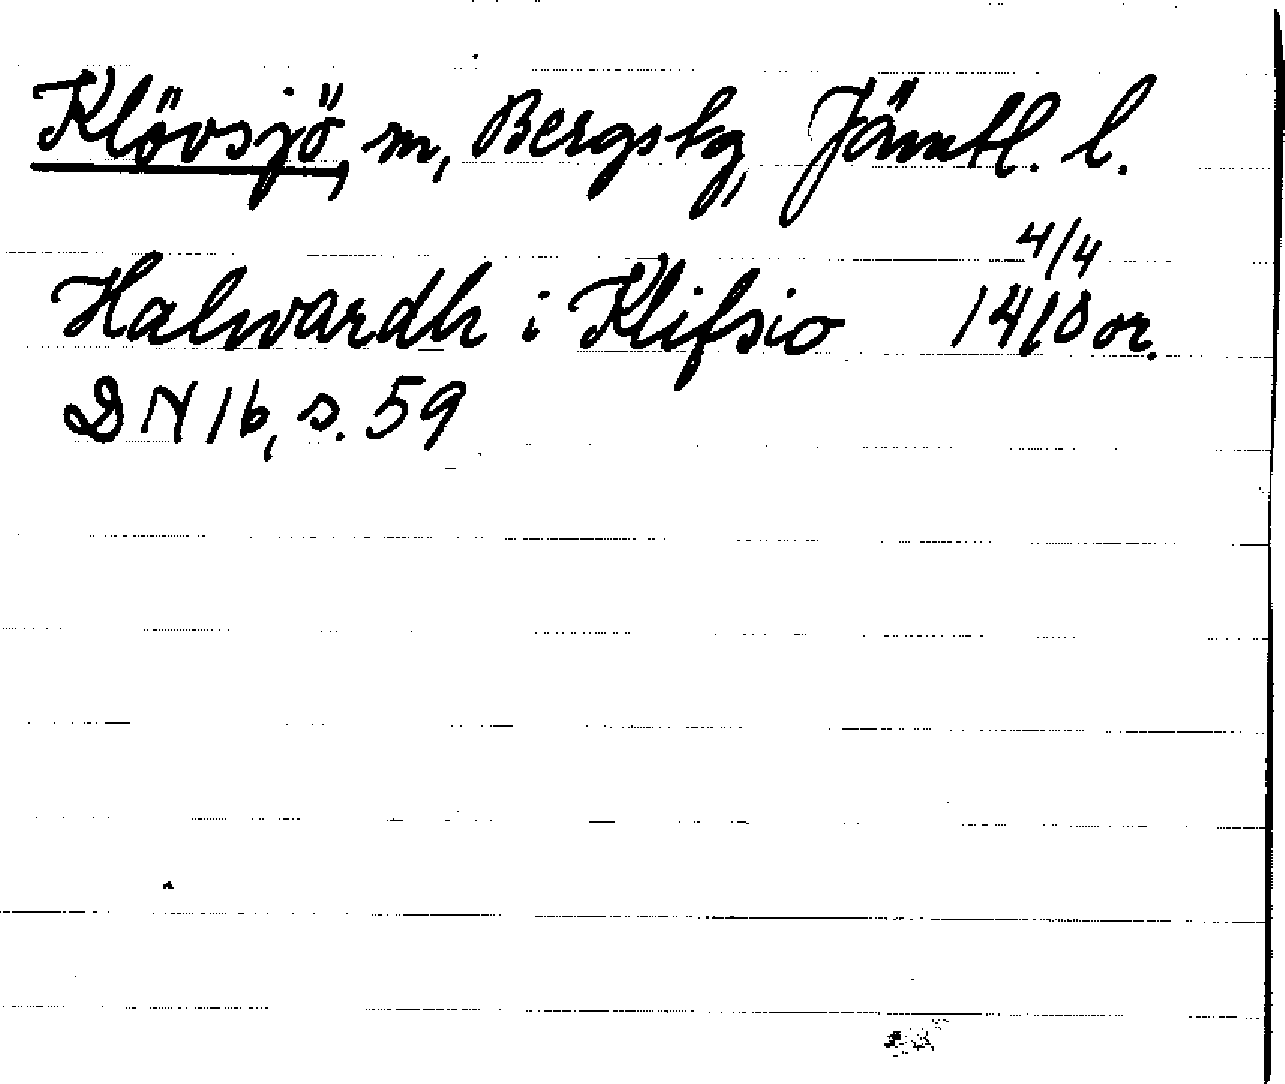 Klövsjö, sn, Bergs hg, Jämtl. l.
Halwardh i Klifsio 4/4 1410 or.
DN 16, s. 59